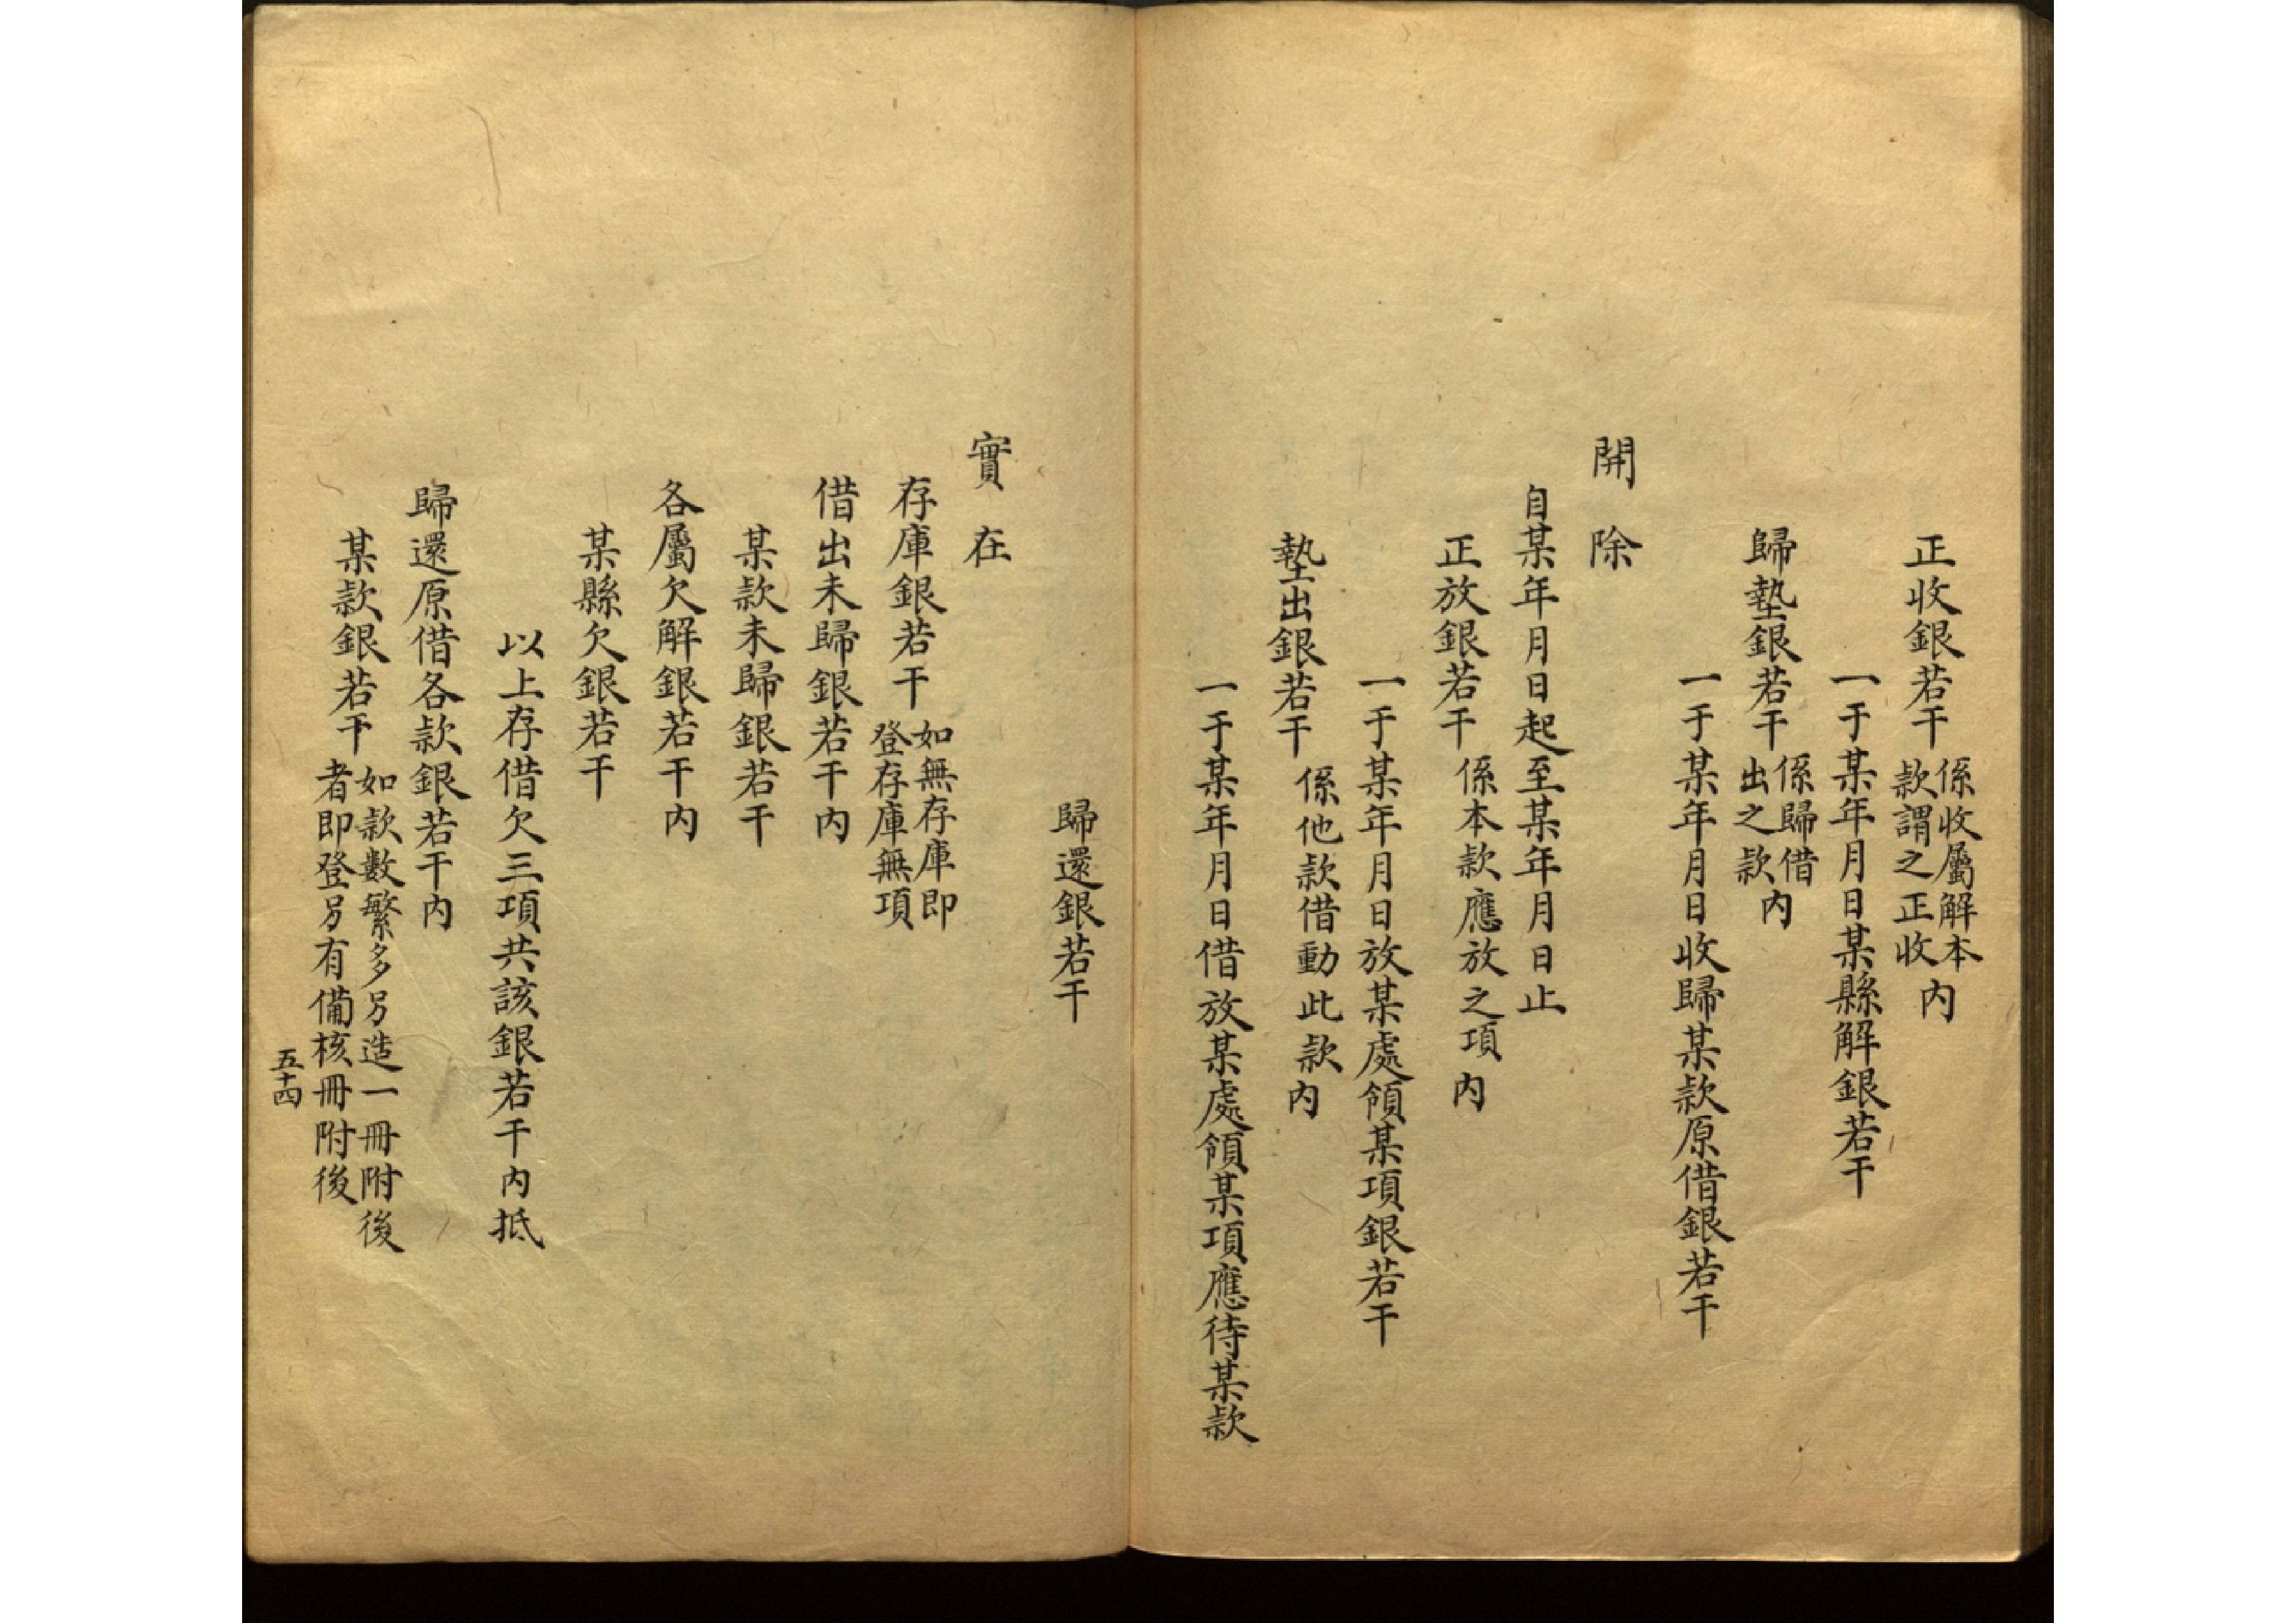 正收銀若干係收屬解本款謂之正收內
一于某年月日某縣解銀若干
歸墊銀若干係歸借出之款內
一于某年月日收歸某款原借銀若干
開除
自某年月日起至某年月日止
正放銀若干係本款應放之項內
一于某年月日放某處領某項銀若干
墊出銀若干係他款借動此款內
一于某年月日借放某處領某項應待某款
歸還銀若干
實在
存庫銀若干如無存庫即登存庫無項
借出未歸銀若干內
某款未歸銀若干
各屬欠解銀若干內
某縣欠銀若干
以上存借欠三項共該銀若干內抵
歸還原借各款銀若干內
某款銀若干如款數繁多另造一冊附後者即登另有備核冊附後
五十四